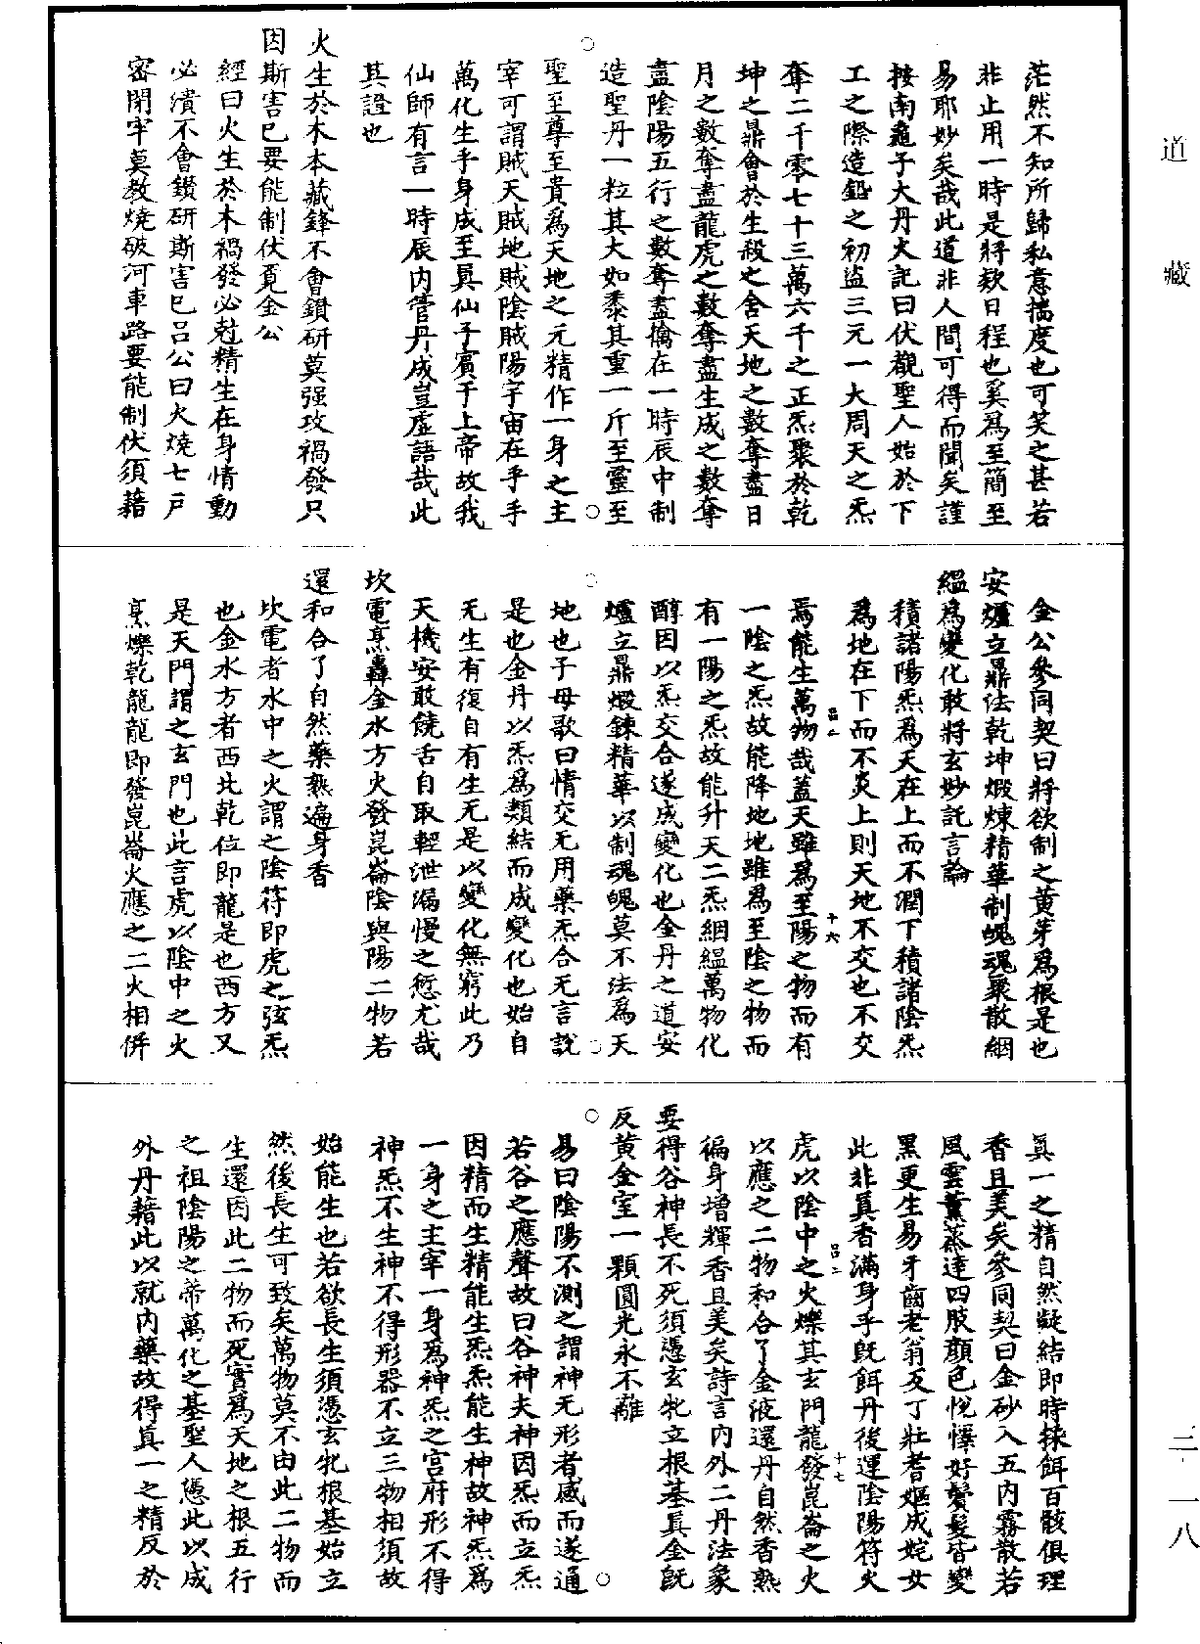 道藏
茫然不知所歸私意揣度也可笑之甚若
非止用一時是將欸日程也奚爲至簡至
易耶妙矣哉此道非人間可得而聞矣謹
按南龜子大丹火記曰伏覩聖人始於下
工之際造鉛之初盜三元一大周天之炁
奪二千零七十三萬六千之正炁聚於乾
坤之鼎會於生殺之舍天地之數奪盡日
月之數奪盡龍虎之數奪盡生成之數奪
盡陰陽五行之數奪盡擒在一時辰中制
造聖丹一粒其大如黍其重一斤至靈至
聖至尊至貴爲天地之元精作一身之主
宰可謂賊天賊地賊陰賊陽宇宙在乎手
萬化生乎身成至眞仙子賓于上帝故我
仙師有言一時辰内管丹成豈虛語哉此
其證也
火生於木本藏鋒不會鑽研莫强攻禍發只
因斯害已要能制伏覓金公
經曰火生於木禍發必剋精生在身情動
必潰不會鑽研斯害已吕公曰火燒七戶
密閉牢莫教燒破河車路要能制伏須藉
金公參同契曰將欲制之黄芽爲根是也
安爐立鼎法乾坤煅煉精華制魄魂聚散絪
緼爲變化敢將玄妙託言論
積諸陽炁爲天在上而不潤下積諸陰炁
爲地在下而不炎上則天地不交也不交
焉能生萬物哉蓋天雖爲至陽之物而有
一陰之炁故能降地地雖爲至陰之物而
有一陽之炁故能升天二炁絪緼萬物化
醇因以炁交合遂成變化也金丹之道安
爐立鼎煅鍊精華以制魂魄莫不法爲天
地也子母歌曰情交无用藥炁合无言說
是也金丹以炁爲類結而成變化也始自
无生有復自有生无是以變化無窮此乃
天機安敢饒舌自取輕泄漏慢之愆尤哉
坎電烹轟金水方火發崑崙陰與陽二物若
還和合了自然藥熟遍身香
坎電者水中之火謂之陰符即虎之弦炁
也金水方者西北乾位即龍是也西方又
是天門謂之玄門也此言虎以陰中之火
烹爍乾龍龍即發崑崙火應之二火相併
眞一之精自然凝結即時採餌百骸俱理
香且美矣參同契曰金砂入五内霧散若
風雲薰蒸達四肢顔色悅懌好鬢髮皆變
黑更生易牙齒老翁反丁壯耆嫗成姹女
此非眞香滿身乎旣餌丹後運陰陽符火
虎以陰中之火爍其玄門龍發崑崙之火
以應之二物和合了金液還丹自然香熟
徧身增輝香且美矣詩言内外二丹法象
要得谷神長不死須憑玄牝立根基眞金旣
反黄金室一顆圓光永不離
易曰陰陽不測之謂神无形者感而遂通
若谷之應聲故曰谷神夫神因炁而立炁
因精而生精能生炁炁能生神故神炁爲
一身之主宰一身爲神炁之宫府形不得
神炁不生神不得形器不立三物相須故
始能生也若欲長生須憑玄牝根基始立
然後長生可致矣萬物莫不由此二物而
生還因此二物而死實爲天地之根五行
之祖陰陽之蒂萬化之基聖人憑此以成
外丹藉此以就内藥故得眞一之精反於
吕二
十六
吕二
十七
三一一八